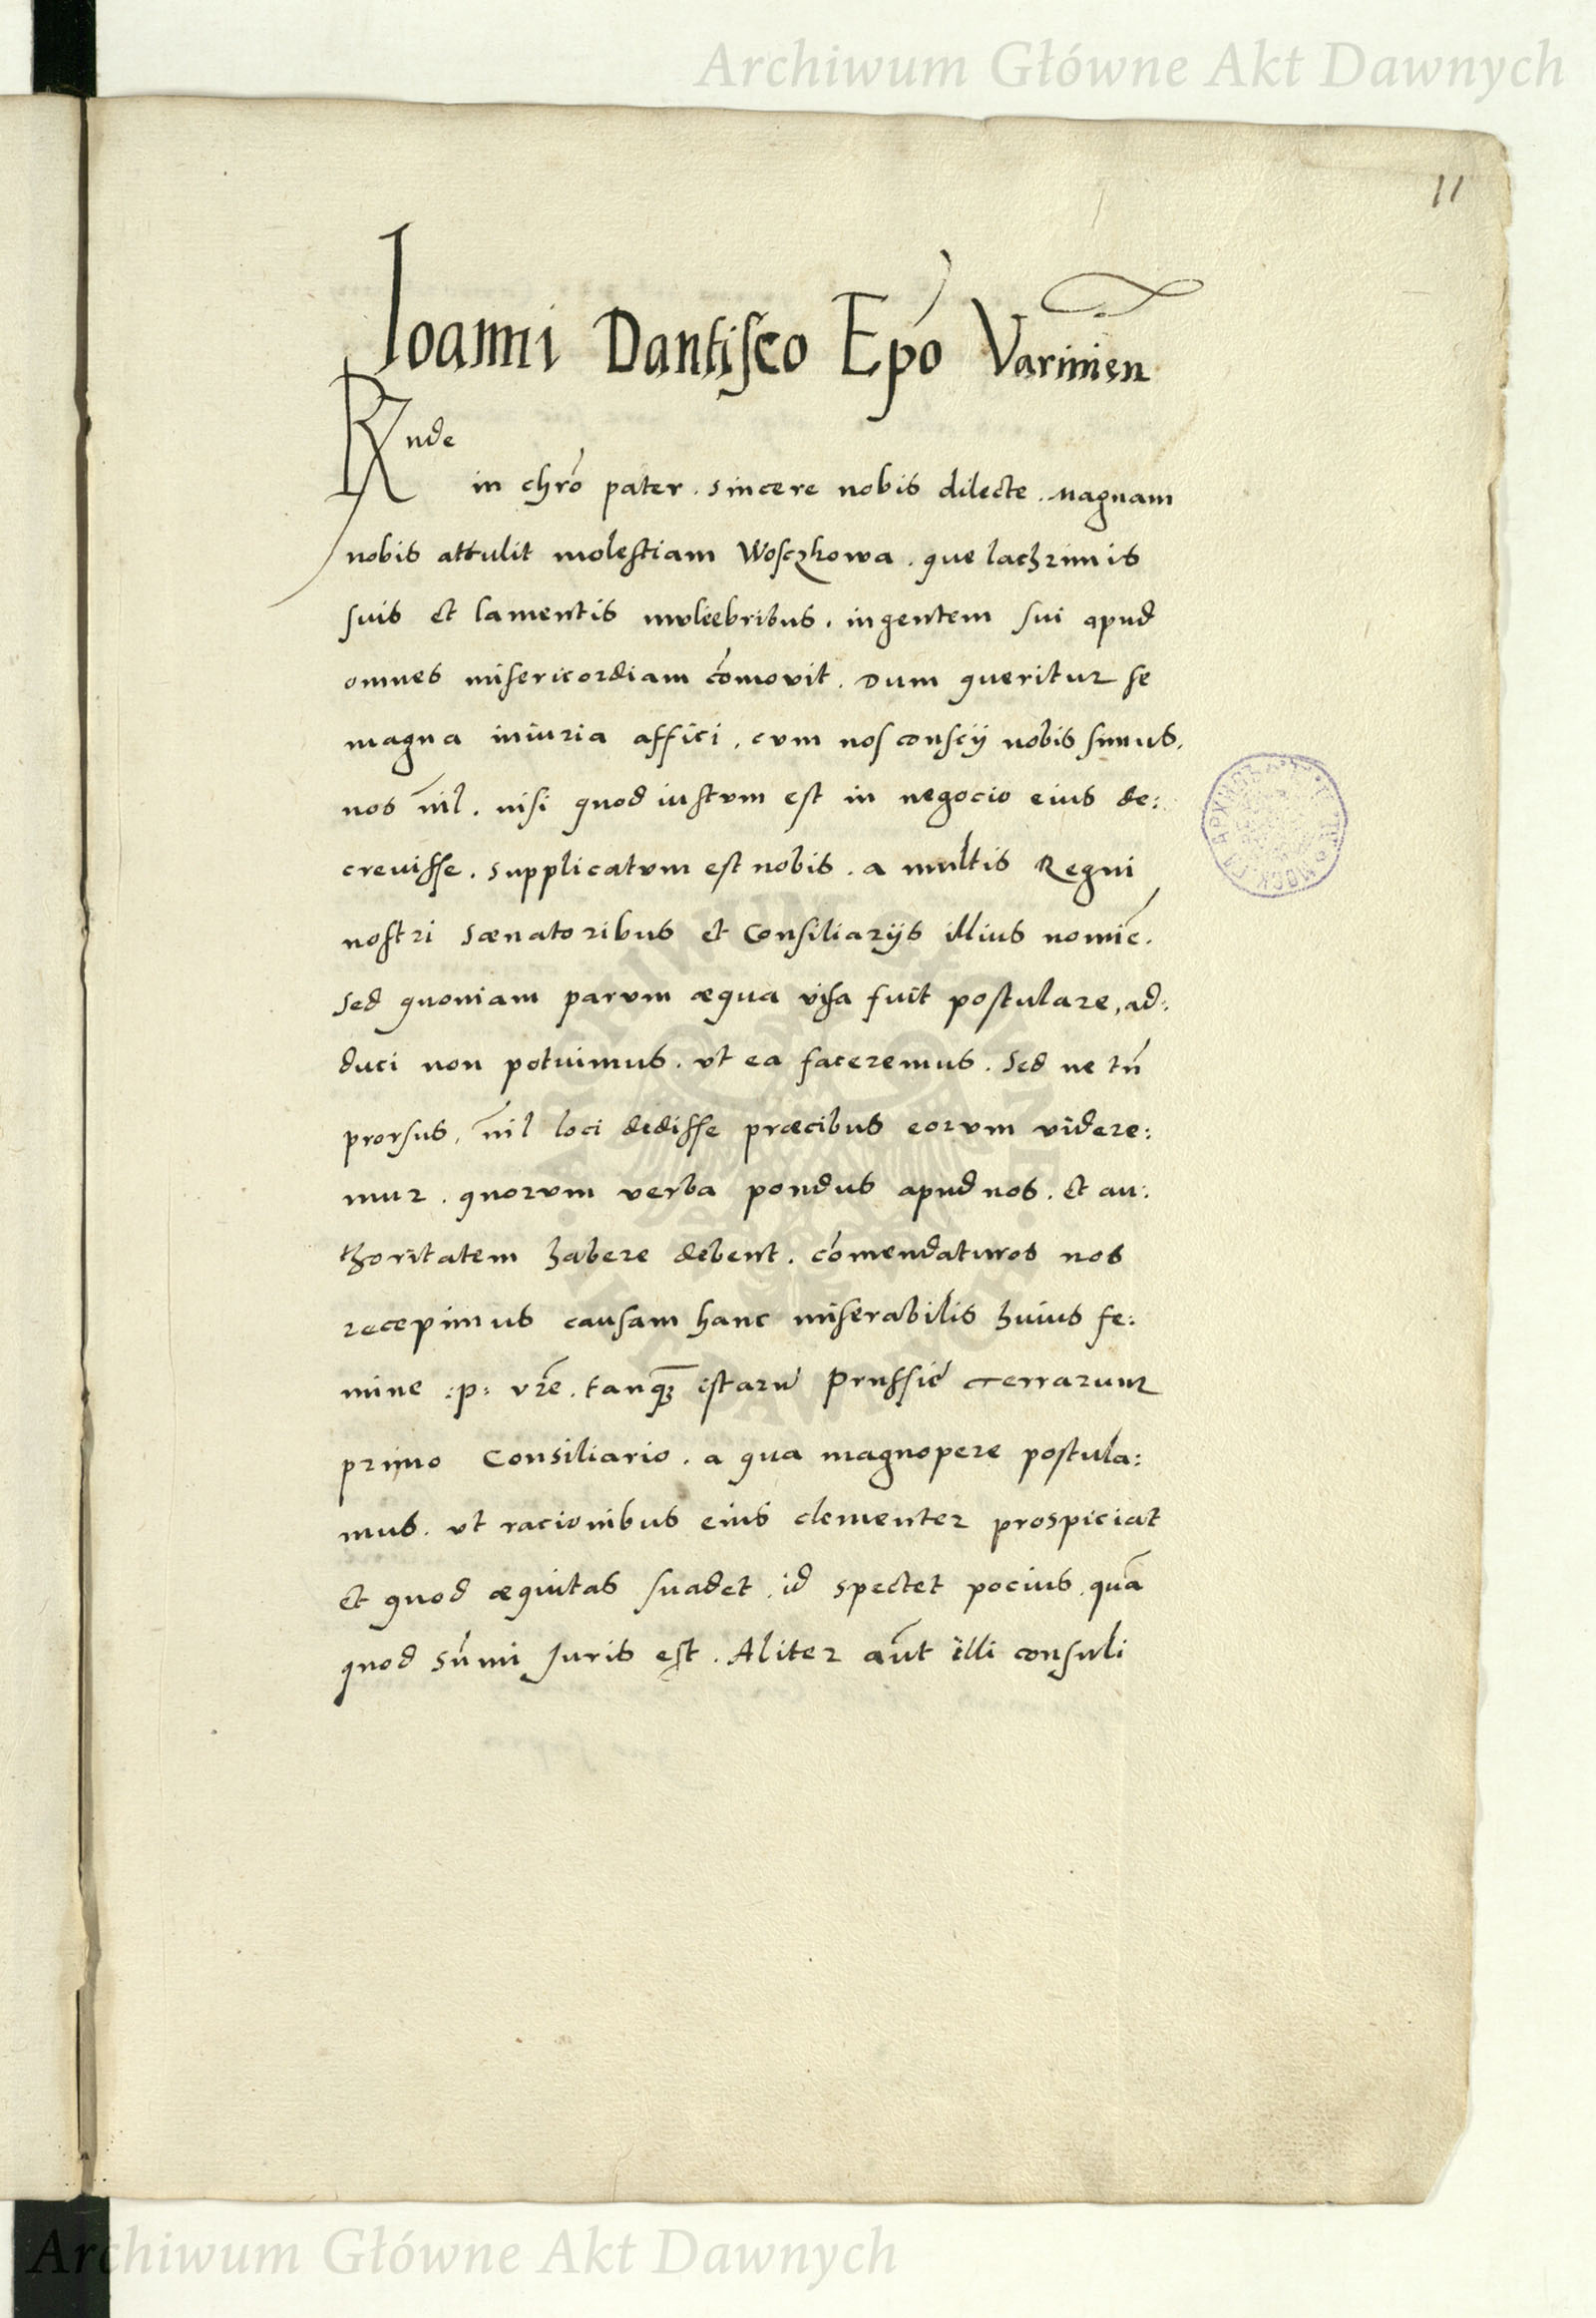 Archiwum Główne Akt Dawnych
11
Ioanni Dantisco Epō Varmien
Rnde
in chrō pater . sincere nobis dilecte . Magnam
nobis attulit molestiam Wosczkowa . que lachrimis
suis et lamentis muliebribus . ingentem sui apud
omnes misericordiam cōmovit . Dum queritur se
magna iniuria affici , cum nos conscij nobis simus,
nos nīl . nisi quod iustum est in negocio eius de:
crevisse . Supplicatum est nobis . a multis Regni
nostri Sænatoribus et Consiliarijs illius nomīe .
Sed quoniam parum æqua visa fuit postulare, ad:
duci non potuimus . ut ea faceremus . Sed ne tn̄
prorsus, nīl loci dedisse præcibus eorum videre:
mur . quorum verba pondus apud nos . et au:
thoritatem habere debent . cōmendaturos nos
recepimus causam hanc miserabilis huius fe:
mine :p: vrē . tanq̄ȝ istarū Prussiē terrarum
primo Consiliario . a qua magnopere postula:
mus . ut racionibus eius clementer prospiciat
et quod æquitas suadet . id spectet pocius . quā
quod sūmi Iuris est . Aliter aūt illi consuli
Archiwum Główne Akt Dawnych